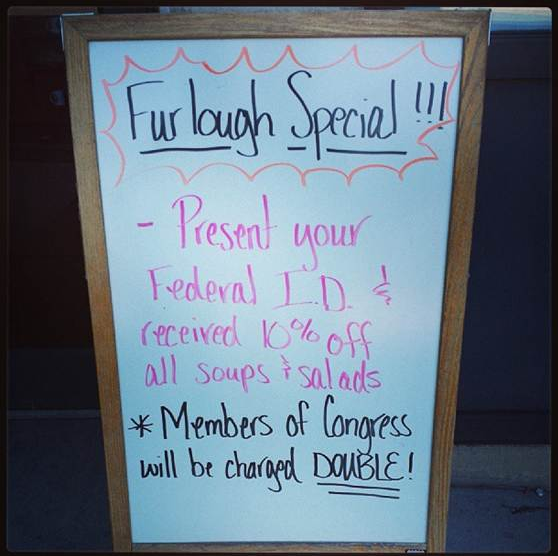 Furlough Special!!!
- Present your
Federal I.D. &
received 10% off
all soups & salads
* Members of Congress
will be charged DOUBLE!